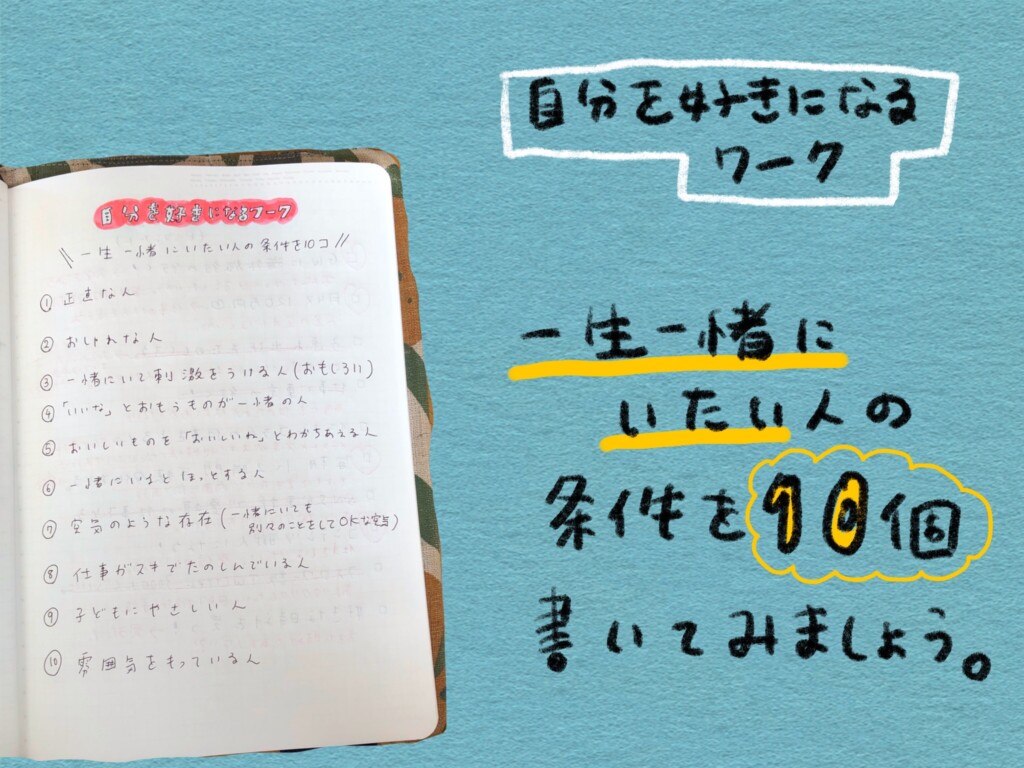 自分を好きになる
ワーク
一生一緒に
いたい人の
条件を10個
書いてみましょう。
自分を好きになるワーク
\\ 一生一緒にいたい人の条件を10コ //
① 正直な人
② おしゃれな人
③ 一緒にいて刺激をうける人(おもしろい)
④ 「いいな」とおもうものが一緒の人
⑤ おいしいものを「おいしいね」とわかちあえる人
⑥ 一緒にいるとほっとする人
⑦ 空気のような存在(一緒にいても
別々のことをしてOKな
⑧ 仕事がスキでたのしんでいる人
⑨ 子どもにやさしい人
⑩ 雰囲気をもっている人